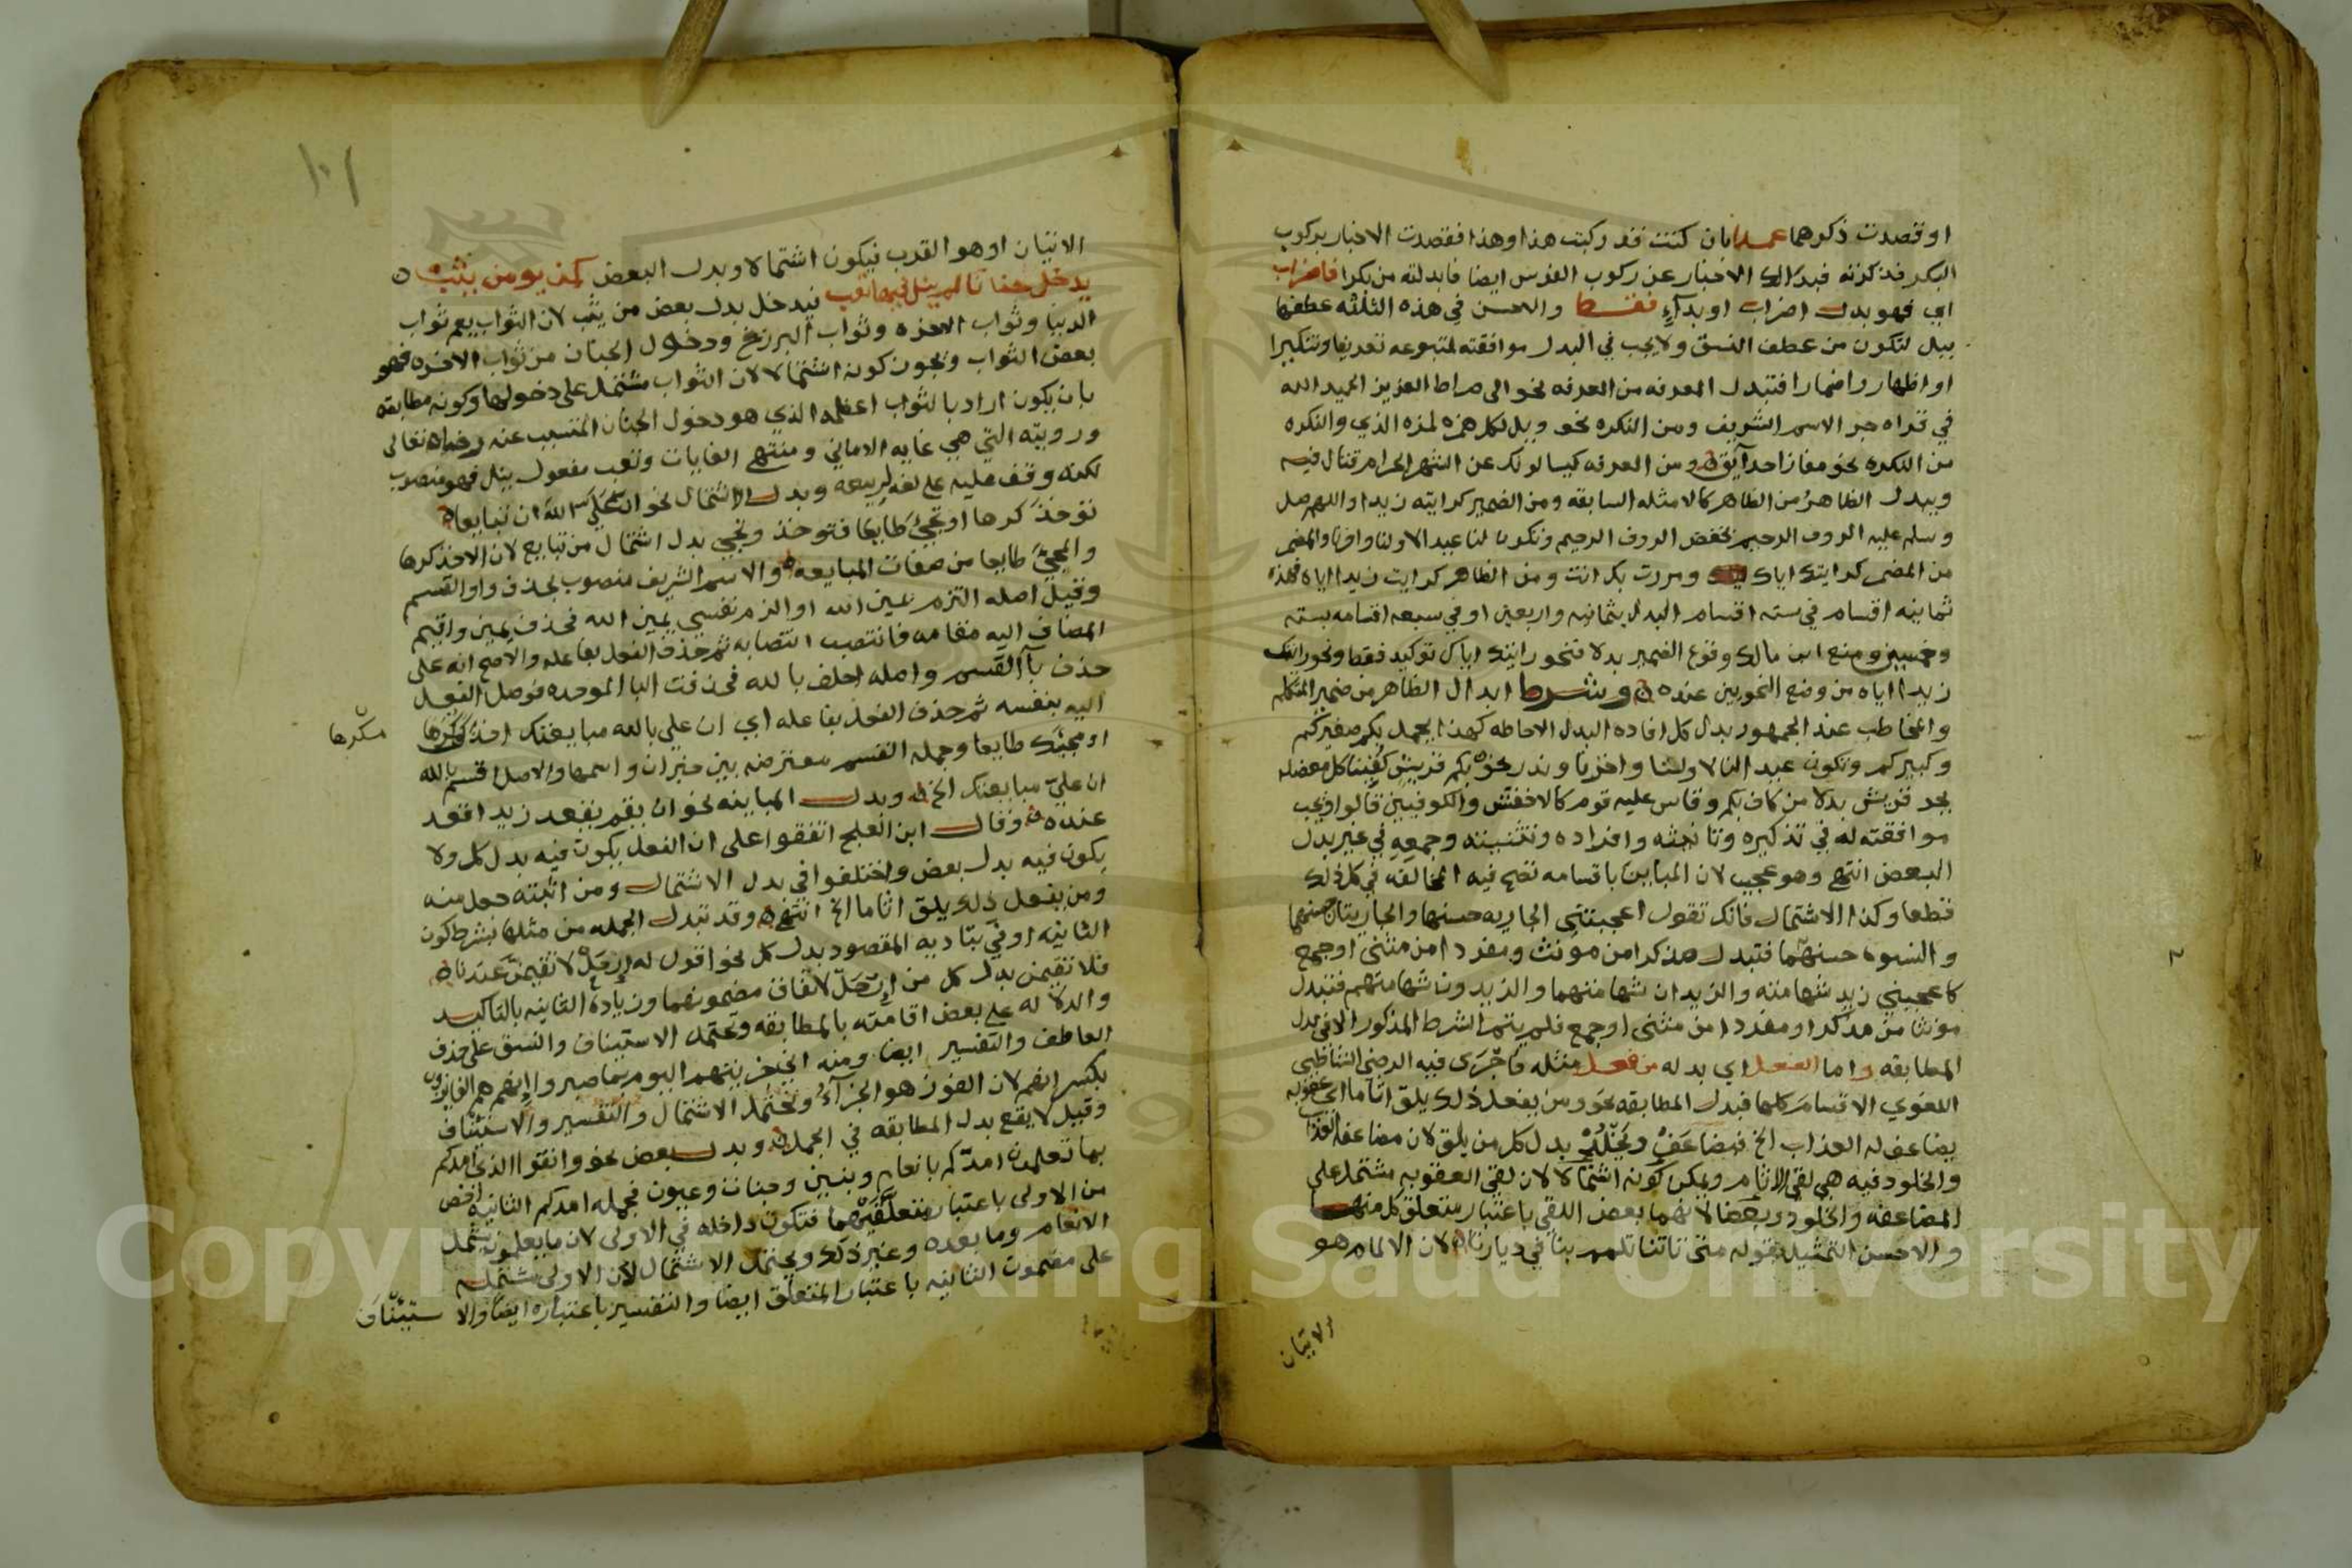 او قصدت ذكرهما عمدا بان كنت قد ركبت هذا وهذا فقصدت الاخبار بركوب
البكر فذكرته فبدالك الاخبار عن ركوب الفرس ايضا فابدلته من بكرا فاضراب
اي فهو بدل اضراب او بدآءٍ فقط والاحسن في هذه الثلثه عطفها
ببل لتكون من عطف النسق ولايجب في البدل موافقته لمتبوعه تعريفا وتنكيرا
او اظهارا واضمارا فتبدل المعرفه من المعرفه نحو الى صراط العزيز الحميد الله
في قراه جر الاسم الشريف ومن النكره نحو ويل لكل همزه لمزه الذي والنكره
من النكره نحو مفازا حدآئق ومن المعرفه كيسالونك عن الشهر الحرام قتال فيه
ويبدل الظاهرُ من الظاهر كالامثله السابقه ومن الضمير كرايته زيدا واللهم صل
وسلم عليه الروف الرحيم بخفض الروف الرحيم وتكون لنا عيد الاولنا واخرنا والمضمر
من المضمر كرايتك اياك ومررت بك انت ومن الظاهر كرايت زيدا اياه فهذه
ثمانيه اقسام في سته اقسام البدل بثمانيه واربعين او في سبعه اقسامه بسته
وخمسين ومنع ابن مالك وقوع الضمير بدلا فنحو رايتك اياك توكيد فقط ونحو رايت
زيدا اياه من وضع النحويين عنده وشرط ابدال الظاهر من ضمير المتكلم
والمخاطب عند الجمهور بدل كل افاده البدل الاحاطه كهذا يجمل بكم صغيركم
وكبيركم وتكون عيد النالاولنا واخرنا وندر نحو بكم قريشٍ كُفينا كل معضله
بجر قريش بدلا من كاف بكم وقاس عليه قوم كالاخفش والكوفيين قالوا ويجب
موافقته له في تذكيره وتانيثه وافراده وتثنيته وجمعه في غير بدل
البعض انتهى وهو عجيب لان المباين باقسامه تصح فيه المخالفه في كل ذلك
قطعا وكذا الاشتمال فانك تقول اعجبتني الجاريه حسنها والجاريتان حسنهما
والنسوه حسنهما فتبدل مذكرا من مونث ومفردا من مثنى اوجمع
كاعجبني زيد شهامته والزيدان شهامتهما والزيدون شهامتهم فتبدل
مونثا من مذكر او مفردا من مثنى اوجمع فلم يتم الشرط المذكور الا في بدل
المطابقه واما الفعل اي بدله من فعل مثله فاجرَى فيه الرضي الشاطبي
اللغوي الاقسام كلها فبدل المطابقه نحو ومن يفعل ذلك يلق اثاما اي عقوبه
يضاعف له العذاب الخ فيضاعَفْ ويَخْلُدْ بدل كل من يلق لان مضاعفه العذاب
والخلود فيه هي لقي الاثام ويمكن كونه اشتمالا لان لقي العقوبه مشتمل على
المضاعفه والخلود وبعضا لانهما بعض اللقي باعتبار متعلق كل منهما
والاحسن التمثيل بقوله متى تاتنا تلمم بنا في ديارنا لان الالمام هو
الاتيان
١٠١
الاتيان او هو القرب فيكون اشتمالا وبدل البعض كمن يومن يثب
يدخل جنانا لم ينل فيها تعب فيدخل بدل بعض من يثب لان الثواب يعم ثواب
الدنيا وثواب الاخره وثواب البرزخ ودخول الجنان من ثواب الاخره فهو
بعض الثواب ويجوز كونه اشتمالا لان الثواب مشتمل على دخولها وكونه مطابقه
بان يكون اراد بالثواب اعظمه الذي هو دخول الجنان المتسبب عنه رضاه تعالى
ورويته التي هي غايه الاماني ومنتهى الغايات وتعب مفعول ينل فهو منصوب
لكنه وقف عليه على لغه ربيعه وبدل الاشتمال نحو ان عَلَيَّ اللهَ ان تبايعا
توخذَ كرها او تجيَ طايعا فتوخذ وتجي بدل اشتمال من تبايع لان الاخذ كرها
والمجيَ طايعا من صفات المبايعه والاسم الشريف منصوب بحذف واو القسم
وقيل اصله التزم يمين الله او الزم نفسي يمين الله فحذف يمين واقيم
المضاف اليه مقامه فانتصب انتصابه ثم حذف الفعل بفاعله والاصح انه على
حذف بآ القسم واصله احلف بالله فحذفت البا الموحده فوصل الفعل
اليه بنفسه ثم حذف الفعل بفاعله اي ان علي بالله مبايعتك اخذك كرها
مكرها
او مجيئك طايعا وجمله القسم معترضه بين خبر ان واسمها والاصل اقسم بالله
ان عليّ مبايعتك الخ وبدل المباينه نحو ان يقم يقعد زيد اقعد
عنده وقال ابن العلج اتفقوا على ان الفعل يكون فيه بدل كل ولا
يكون فيه بدل بعض واختلفوا في بدل الاشتمال ومن اثبته جعل منه
ومن يفعل ذلك يلق اثاما الخ انتهى وقد تبدل الجمله من مثلها بشرط كون
الثانيه اوفى بتاديه المقصود بدل كل نحو اقول له ارحل لا تقيمن عندنا
فلا تقيمن بدل كل من ارحل لاتفاق مضمونهما وزياده الثانيه بالتاكيد
والدلاله على بعض اقامته بالمطابقه وتحتمل الاستيناف والنسق على حذف
العاطف والتفسير ايضا ومنه اني جزيتهم اليوم بما صبروا إنهم هم الفايزون
بكسر انهم لان الفوز هو الجزآءُ وتحتمل الاشتمال والتفسير والاستيناف
وقيل لا يقع بدل المطابقه في الجمل وبدل بعض نحو واتقوا الذي امدكم
بما تعلمون امدّكم بانعام وبنين وجنات وعيون فجمله امدكم الثانيه اخص
من الاولى باعتبار متعلَّقَيْهما فتكون داخله في الاولى لان ما يعلمون يشمل
الانعام وما بعده وغير ذلك ويحتمل الاشتمال لان الاولى مشتمله
على مضمون الثانيه باعتبار المتعلق ايضا والتفسير باعتباره ايضا والاستيناف
Copyright © King Saud University